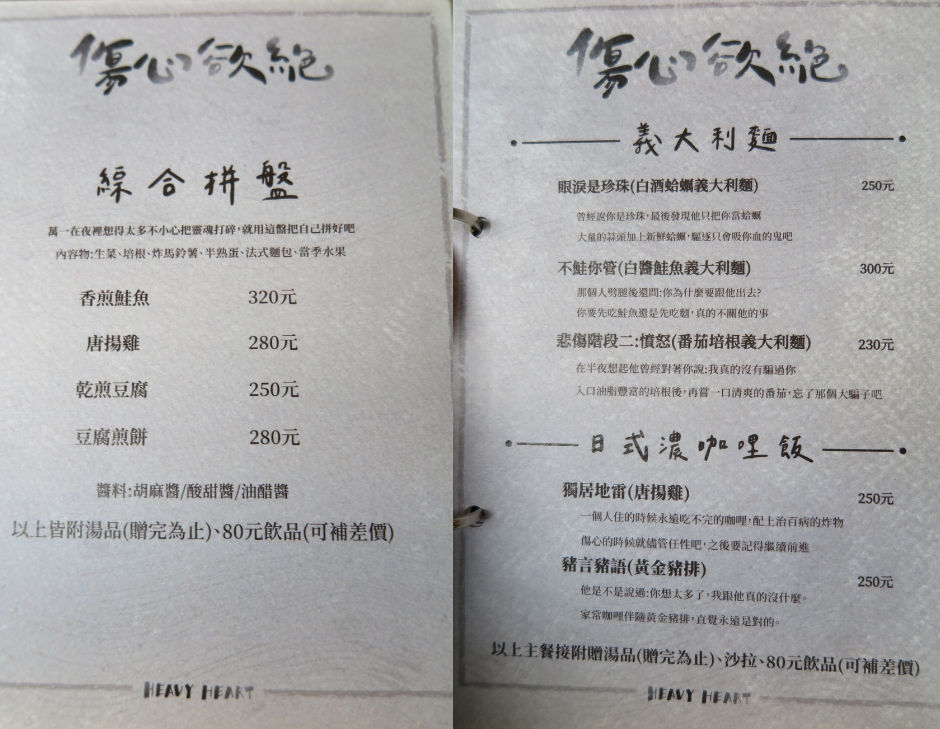 傷心欲絕
綜合拼盤
萬一在夜裡想得太多不小心把靈魂打碎,就用這盤把自己拼好吧
內容物:生菜、培根、炸馬鈴薯、半熟蛋、法式麵包、當季水果
香煎鮭魚 320元
唐揚雞 280元
乾煎豆腐 250元
豆腐煎餅 280元
醬料:胡麻醬/酸甜醬/油醋醬
以上皆附湯品(贈完為止)、80元飲品(可補差價)
HEAVY HEART
傷心欲絕
義大利麵
眼淚是珍珠(白酒蛤蠣義大利麵) 250元
曾經說你是珍珠,最後發現他只把你當蛤蠣
大量的蒜頭加上新鮮蛤蠣,驅逐只會吸你血的鬼吧
不鮭你管(白醬鮭魚義大利麵) 300元
那個人劈腿後還問:你為什麼要跟他出去?
你要先吃鮭魚還是先吃麵,真的不關他的事
悲傷階段二:憤怒(番茄培根義大利麵) 230元
在半夜想起他曾經對著你說:我真的沒有騙過你
入口油脂豐富的培根後,再嘗一口清爽的番茄,忘了那個大騙子吧
日式濃咖哩飯
獨居地雷(唐揚雞) 250元
一個人住的時候永遠吃不完的咖哩,配上治百病的炸物
傷心的時候就儘管任性吧,之後要記得繼續前進
豬言豬語(黃金豬排) 250元
他是不是說過:你想太多了,我跟他真的沒什麼。
家常咖哩伴隨黃金豬排,直覺永遠是對的。
以上主餐接附贈湯品(贈完為止)、沙拉、80元飲品(可補差價)
HEAVY HEART